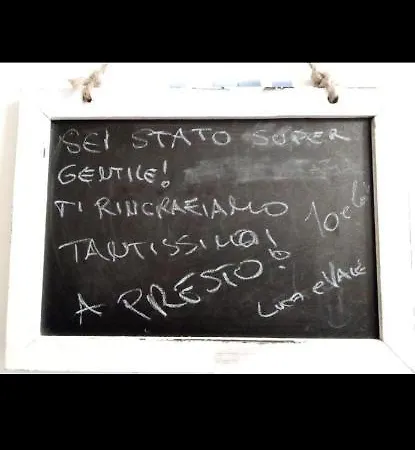 SEI STATO SUPER
GENTILE!
TI RINGRAZIAMO
TANTISSIMO!
A PRESTO!
10 e Lode
LUCA e VALE